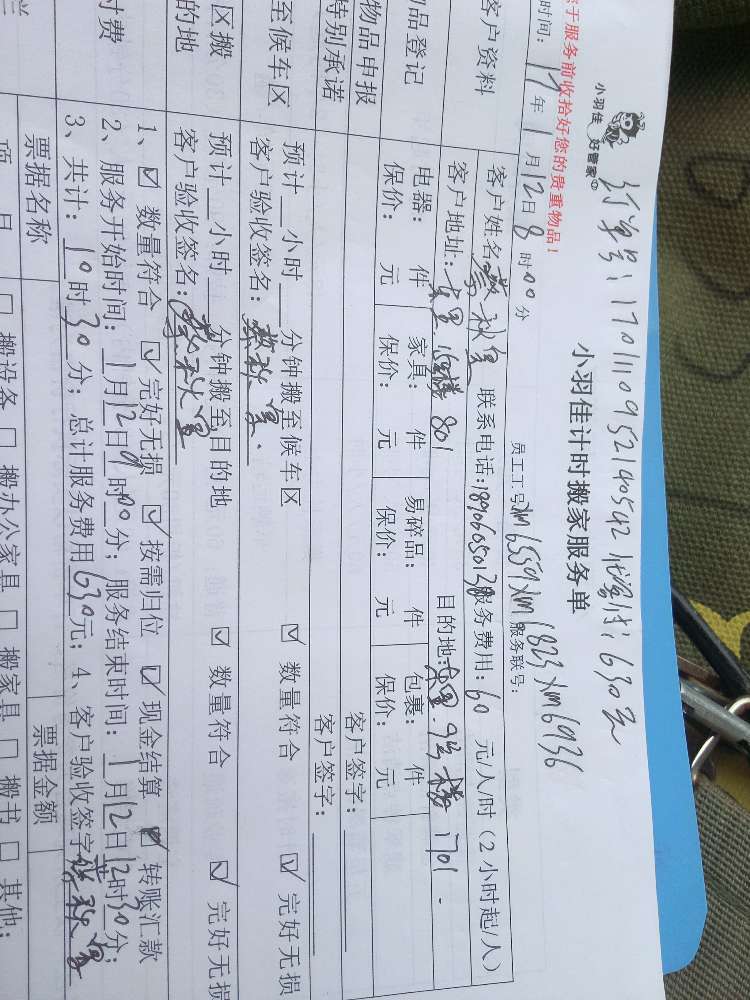 小羽佳 好管家
订单号:1701110952190542 增值:630元
小羽佳计时搬家服务单
于服务前收拾好您的贵重物品!
员工工号 xm6559 xm6823 xm6936 服务联号:
时间: 17 年 1 月 12 日 8 时 00 分
客户资料
客户姓名 联系电话: 服务费用: 60 元/人/时(2小时起/人)
客户地址: 801 目的地: 9号楼 1701.
品登记
电器: 件 家具: 件 易碎品: 件 包裹: 件
保价: 元 保价: 元 保价: 元 保价: 元
物品申报 客户签字:
特别承诺 客户签字:
至候车区
预计 小时 分钟搬至候车区 ☑ 数量符合 ☑ 完好无损
客户验收签名:
区搬
的地
预计 小时 分钟搬至目的地 ☑ 数量符合 ☑ 完好无损
客户验收签名:
付费
1、☑ 数量符合 ☑ 完好无损 ☑ 按需归位 ☑ 现金结算 ☑ 转账汇款
2、服务开始时间: 1月12日9时00分; 服务结束时间: 1月12日12时30分;
3、共计: 10时30分; 总计服务费用630元; 4、客户验收签字
票据名称 票据金额
项 目 □ 搬设备 □ 搬办公家具 □ 搬家具 □ 搬书 □ 其他: